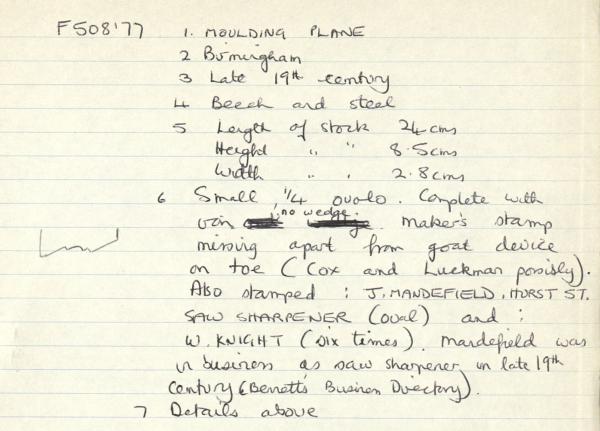 F508'77 1. MOULDING PLANE
2 Birmingham
3 Late 19th century
4 Beech and steel
5 Length of stock 24cms
Height " " 8.5cms
Width " " 2.8cms
6 Small, 1/4 ovolo. Complete with
iron no wedge. maker's stamp
missing apart from goat device
on toe (Cox and Luckman possibly).
Also stamped : J. MANDEFIELD, HURST ST.
SAW SHARPENER (oval) and :
W. KNIGHT (six times). Mandefield was
in business as saw sharpener in late 19th
century (Bennett's Business Directory).
7 Details above